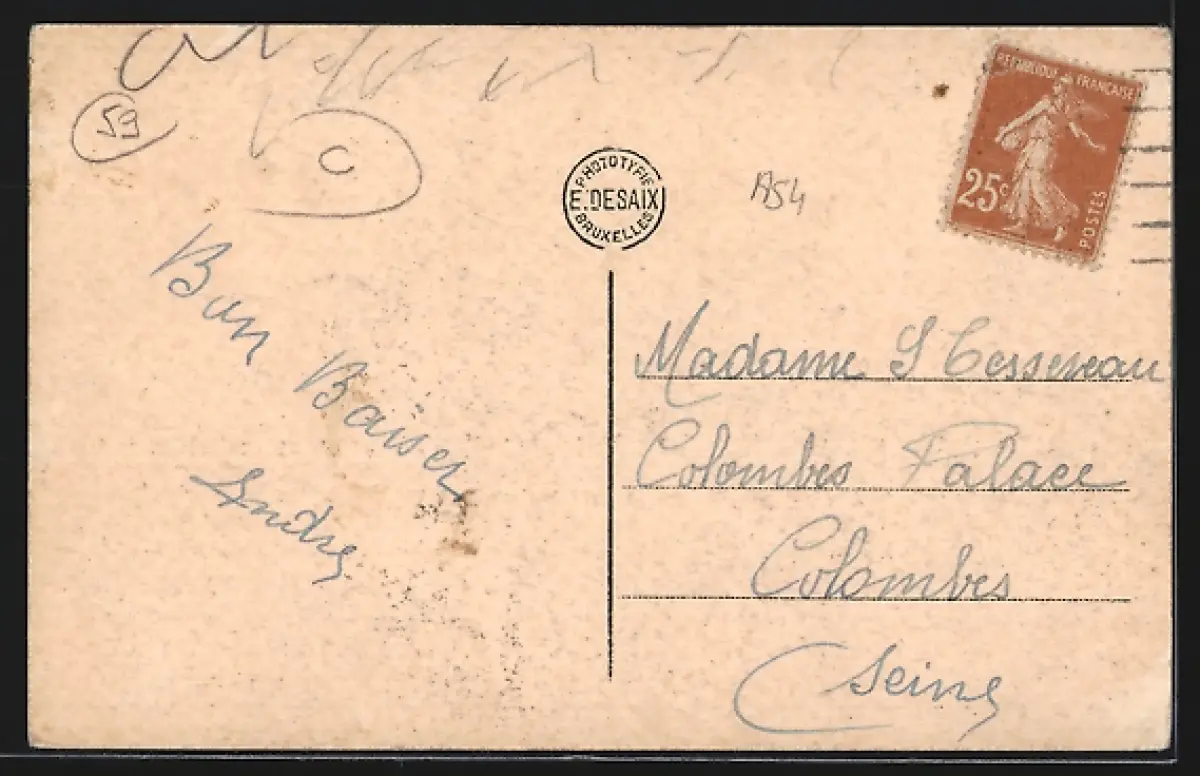 59
C
PHOTOTYPIE
E. DESAIX
BRUXELLES
A54
REPUBLIQUE FRANCAISE
25c
POSTES
Bon Baiser
Andre
Madame S
Colombes Palace
Colombes
Seine